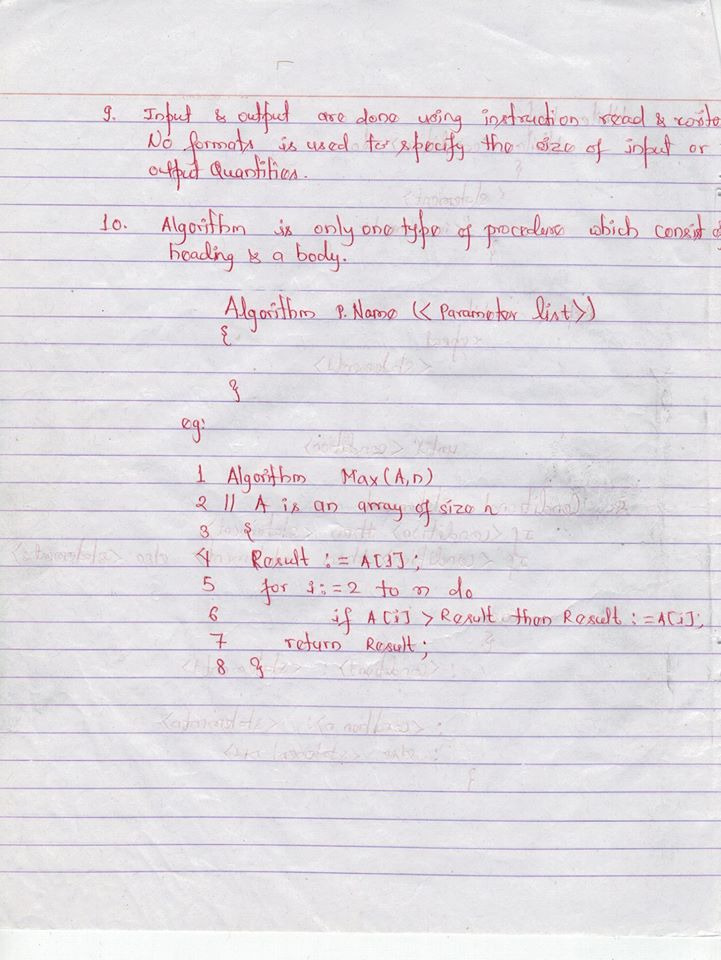 9. Input & output are done using instruction read & write
No formats is used to specify the size of input or
output Quantities.
10. Algorithm is only one type of procedure which consist of
heading & a body.
Algorithm P.Name (< Parameter list >)
{
}
eg:
1 Algorithm Max(A,n)
2 // A is an array of size n
3 {
4 Result := A[1];
5 for i:=2 to n do
6 if A[i] > Result then Result := A[i];
7 return Result;
8 }